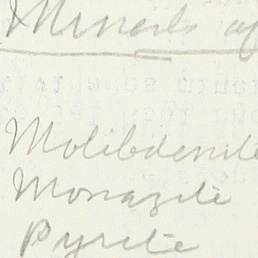 Minerals of
Molibdenite
Monazite
Pyrite